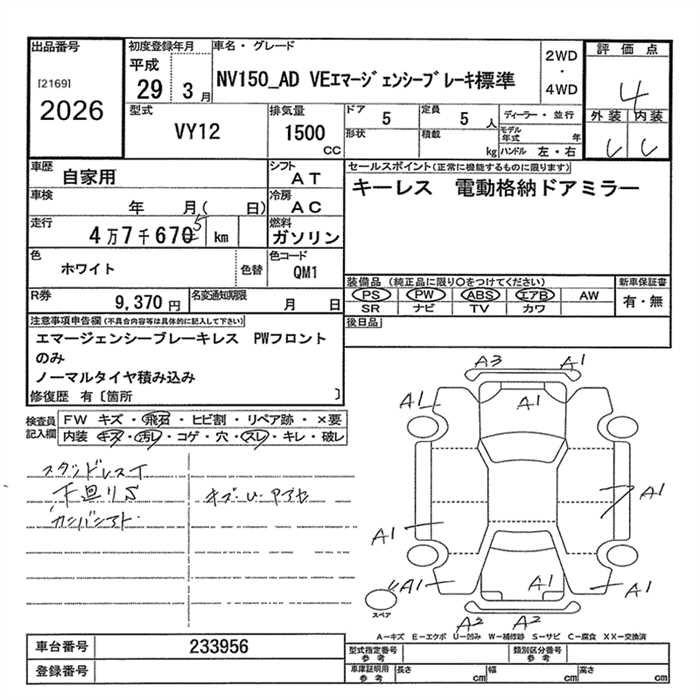 出品番号
[2169]
2026
初度登録年月
平成
29 3 月
車名・グレード
NV150_AD VEエマージェンシーブレーキ標準
2WD
・
4WD
評価点
4
外装 内装
型式
VY12
排気量
1500
CC
ドア
5
定員
5 人
形状
積載
kg
ディーラー・並行
モデル年式 年
ハンドル 左・右
車歴
自家用
シフト
AT
車検
年 月( 日)
冷房
AC
走行
4万7千670 km
燃料
ガソリン
セールスポイント(正常に機能するものに限ります)
キーレス 電動格納ドアミラー
色
ホワイト
色替
色コード
QM1
装備品 (純正品に限り○をつけてください)
PS PW ABS エアB AW
SR ナビ TV カワ
新車保証書
有・無
R券
9,370 円
名変通知期限
月 日
後日品
注意事項申告欄(不具合内容等は具体的に記入して下さい)
エマージェンシーブレーキレス PWフロント
のみ
ノーマルタイヤ積み込み
修復歴 有〔箇所 〕
検査員
記入欄
FW キズ・飛石・ヒビ割・リペア跡・×要
内装 キズ・汚レ・コゲ・穴・スレ・キレ・破レ
スタッドレスT
下廻りS
A3 A1
A1 A1
A1
A1
A1 A1 A1
A2 A2
スペア
A-キズ E-エクボ U-凹み W-補修跡 S-サビ C-腐食 XX-交換済
車台番号
233956
登録番号
型式指定番号
参考
類別区分番号
参考
車庫証明用
参考
長さ cm
幅 cm
高さ cm